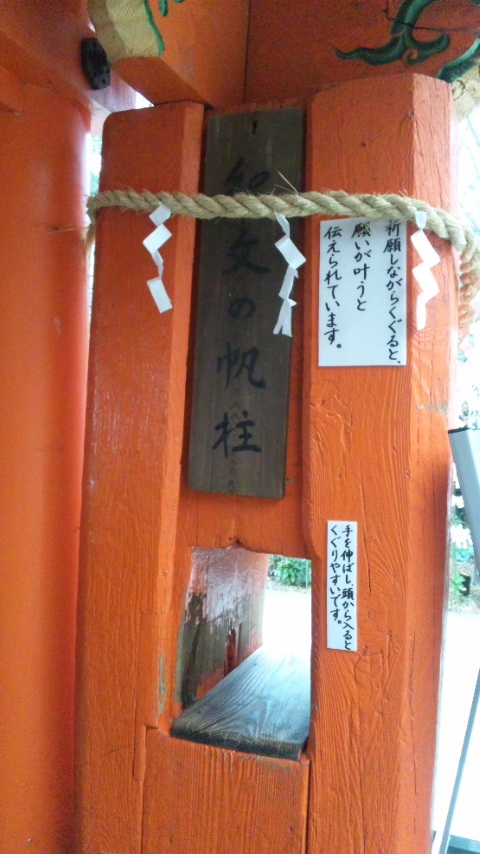 知文の帆柱
祈願しながらくぐると、
願いが叶うと
伝えられています。
手を伸ばし、頭から入ると
くぐりやすいです。